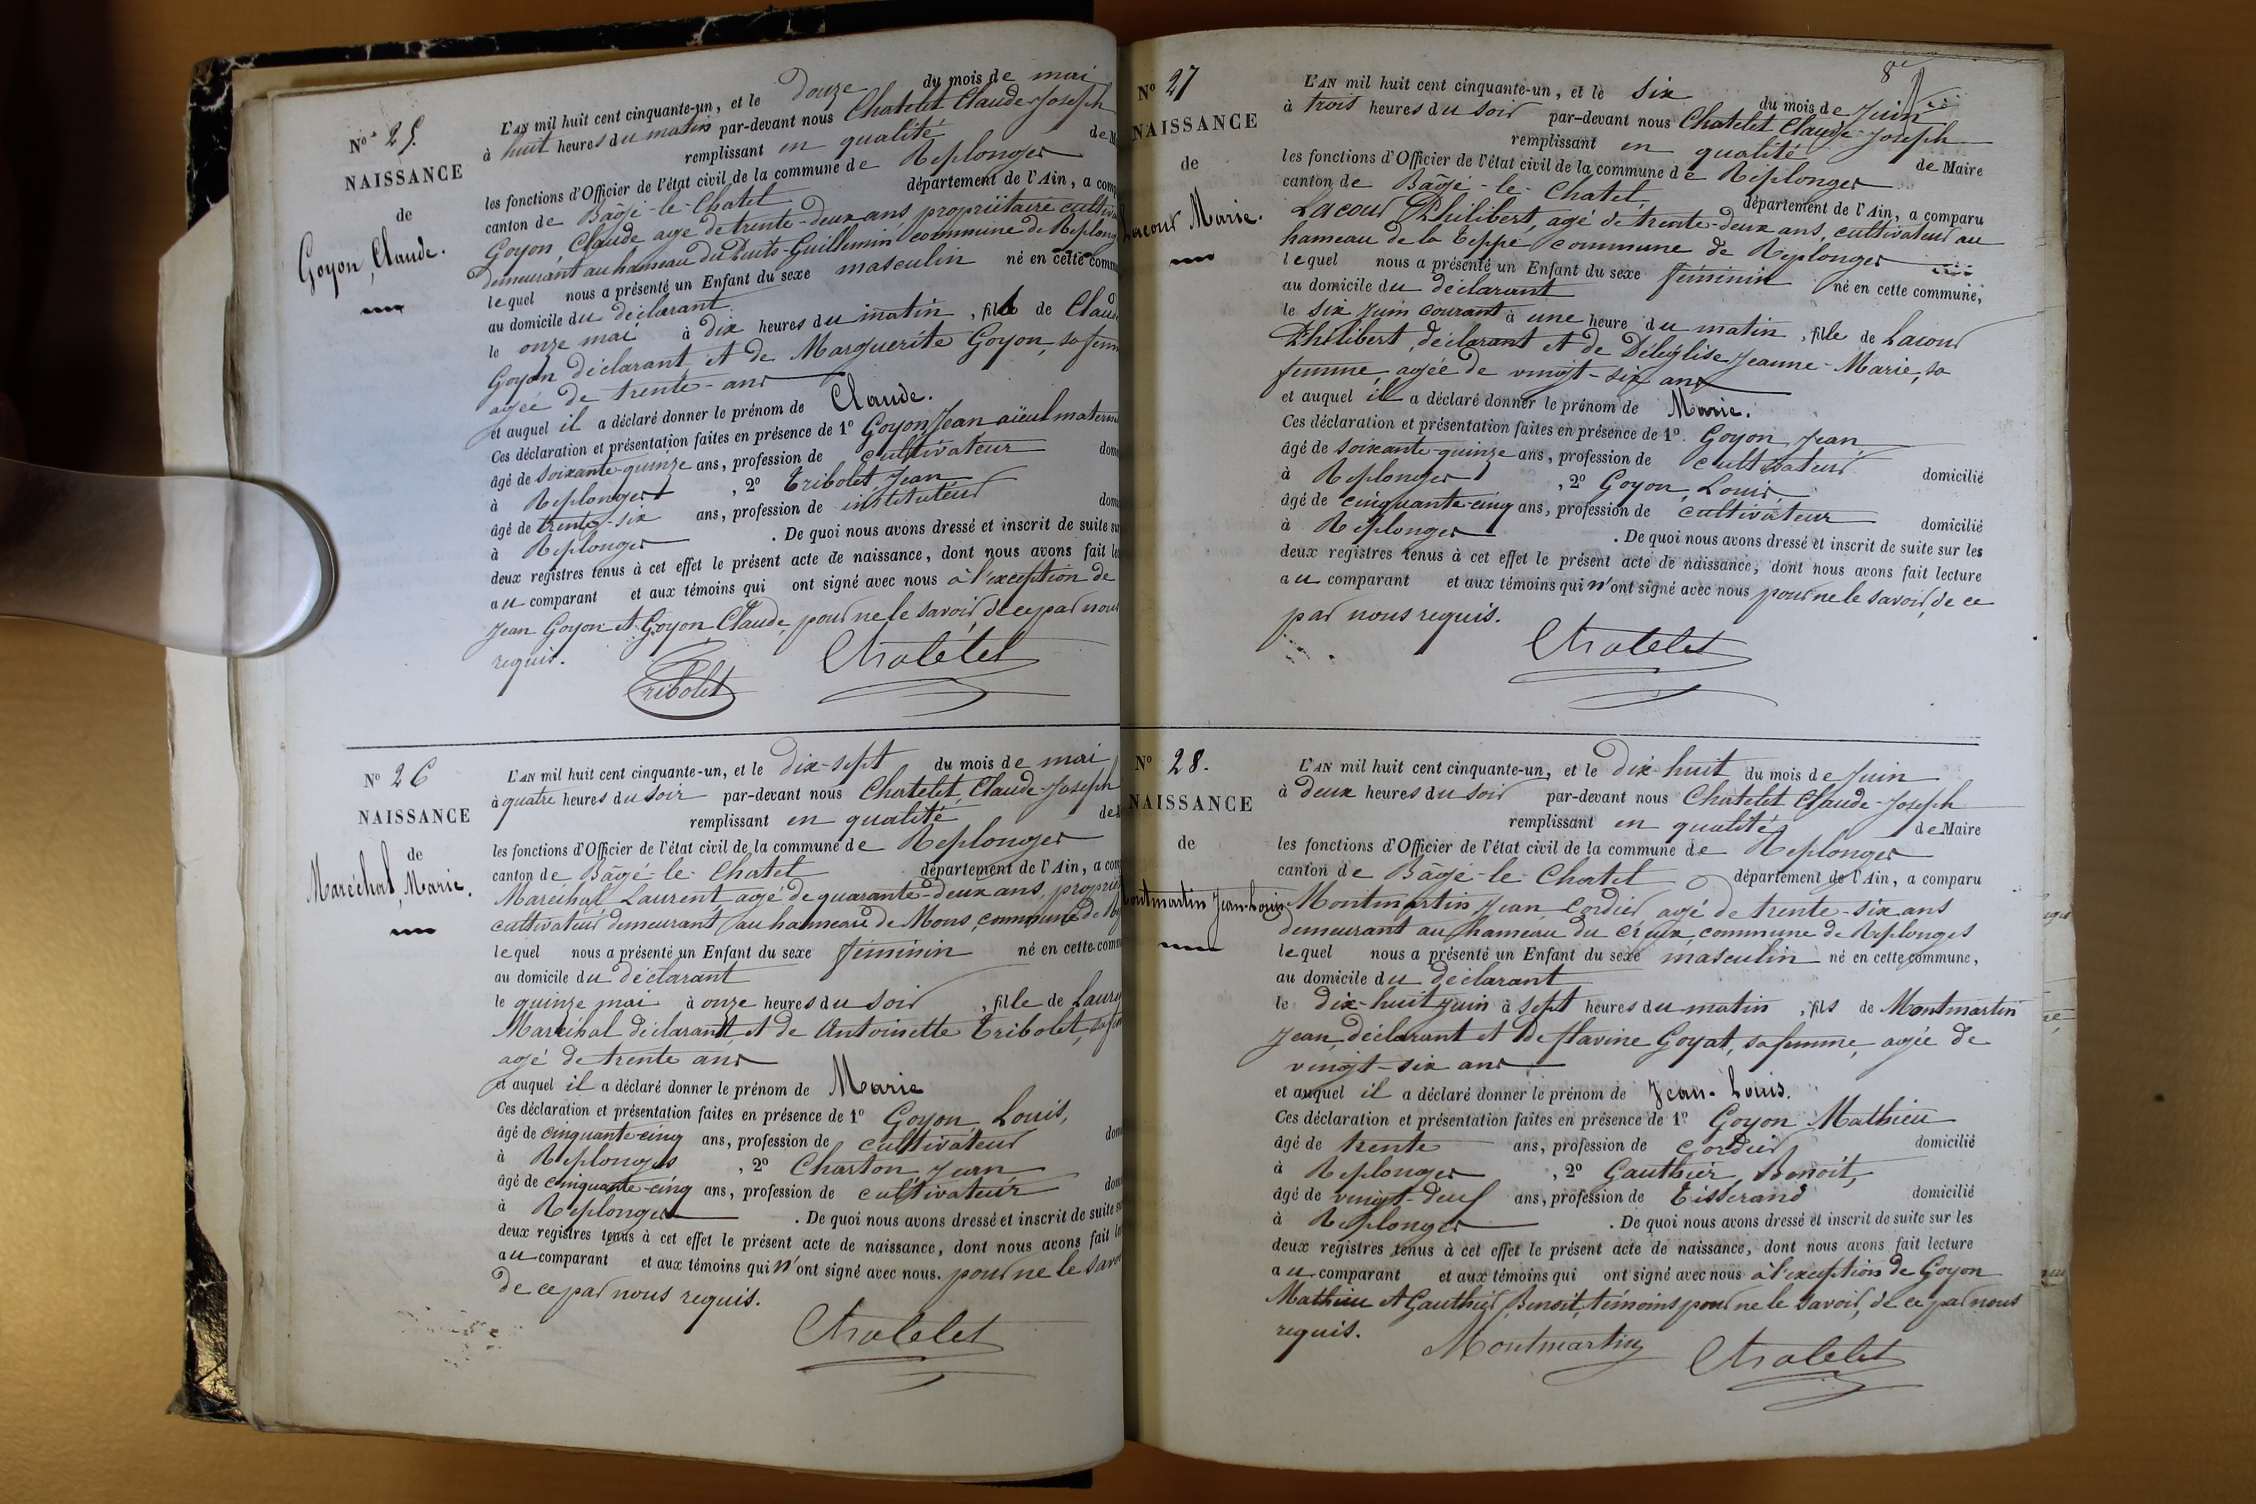 N° 25.
NAISSANCE
de
Goyon, Claude.
L'AN mil huit cent cinquante-un, et le douze du mois de mai
à huit heures du matin par-devant nous Chatelet Claude-Joseph
remplissant en qualité de M
les fonctions d'Officier de l'état civil de la commune de Replonges
canton de Bâgé-le-Chatel département de l'Ain, a comp
Goyon, Claude agé de trente-deux ans propriétaire cultiva
demeurant au hameau du Puits-Guillemin commune de Replong
lequel nous a présenté un Enfant du sexe masculin né en cette comm
au domicile du déclarant
le onze mai à dix heures du matin, fils de Claude
Goyon déclarant et de Marguerite Goyon, sa femm
agée de trente-ans
et auquel il a déclaré donner le prénom de Claude.
Ces déclaration et présentation faites en présence de 1° Goyon Jean aïeul matern
âgé de soixante-quinze ans, profession de cultivateur domi
à Replonges, 2° Tribolet Jean
âgé de trente-six ans, profession de instituteur domi
à Replonges. De quoi nous avons dressé et inscrit de suite sur
deux registres tenus à cet effet le présent acte de naissance, dont nous avons fait le
au comparant et aux témoins qui ont signé avec nous à l'exception de
Jean Goyon et Goyon Claude, pour ne le savoir, de ce par nous
requis.
Tribolet Chatelet
N° 26
NAISSANCE
de
Maréchal, Marie.
L'AN mil huit cent cinquante-un, et le dix-sept du mois de mai
à quatre heures du soir par-devant nous Chatelet, Claude-Joseph
remplissant en qualité de
les fonctions d'Officier de l'état civil de la commune de Replonges
canton de Bâgé-le-Chatel département de l'Ain, a com
Maréchal Laurent, agé de quarante-deux ans, propriét
cultivateur demeurant au hameau de Mons, commune de Rep
lequel nous a présenté un Enfant du sexe féminin né en cette comm
au domicile du déclarant
le quinze mai à onze heures du soir, fille de Laure
Maréchal déclarant, et de Antoinette Tribolet, sa fem
agé de trente ans
et auquel il a déclaré donner le prénom de Marie
Ces déclaration et présentation faites en présence de 1° Goyon Louis,
âgé de cinquante-cinq ans, profession de cultivateur domi
à Replonges, 2° Charton Jean
âgé de cinquante-cinq ans, profession de cultivateur domi
à Replonges. De quoi nous avons dressé et inscrit de suite su
deux registres tenus à cet effet le présent acte de naissance, dont nous avons fait le
au comparant et aux témoins qui n'ont signé avec nous. pour ne le savoir
de ce par nous requis.
Chatelet
8e
N° 27
NAISSANCE
de
Lacour Marie.
L'AN mil huit cent cinquante-un, et le six du mois de Juin
à trois heures du soir par-devant nous Chatelet Claude-Joseph
remplissant en qualité de Maire
les fonctions d'Officier de l'état civil de la commune de Replonges
canton de Bâgé-le-Chatel, département de l'Ain, a comparu
Lacour Philibert, agé de trente-deux ans, cultivateur au
hameau de la Teppe commune de Replonges
lequel nous a présenté un Enfant du sexe féminin né en cette commune,
au domicile du déclarant
le six juin courant à une heure du matin, fille de Lacour
Philibert, déclarant et de Déléglise Jeanne-Marie, sa
femme, agée de vingt-six ans
et auquel il a déclaré donner le prénom de Marie.
Ces déclaration et présentation faites en présence de 1°. Goyon Jean
âgé de soixante-quinze ans, profession de cultivateur domicilié
à Replonges, 2° Goyon, Louis,
âgé de cinquante-cinq ans, profession de cultivateur domicilié
à Replonges. De quoi nous avons dressé et inscrit de suite sur les
deux registres tenus à cet effet le présent acte de naissance, dont nous avons fait lecture
au comparant et aux témoins qui n'ont signé avec nous pour ne le savoir, de ce
par nous requis.
Chatelet
N° 28.
NAISSANCE
de
Montmartin Jean-Louis
L'AN mil huit cent cinquante-un, et le dix-huit du mois de Juin
à deux heures du soir par-devant nous Chatelet Claude-Joseph
remplissant en qualité de Maire
les fonctions d'Officier de l'état civil de la commune de Replonges
canton de Bâgé-le-Chatel département de l'Ain, a comparu
Montmartin Jean, Cordier, agé de trente-six ans
demeurant au hameau du Creux, commune de Replonges
lequel nous a présenté un Enfant du sexe masculin né en cette commune,
au domicile du déclarant
le dix-huit juin à sept heures du matin, fils de Montmartin
Jean, déclarant et de flavine Goyat, sa femme, agée de
vingt-six ans
et auquel il a déclaré donner le prénom de Jean-Louis.
Ces déclaration et présentation faites en présence de 1° Goyon Mathieu
âgé de trente ans, profession de Cordier domicilié
à Replonges, 2° Gauthier, Benoit,
âgé de vingt-deuf ans, profession de Tisserand domicilié
à Replonges. De quoi nous avons dressé et inscrit de suite sur les
deux registres tenus à cet effet le présent acte de naissance, dont nous avons fait lecture
au comparant et aux témoins qui ont signé avec nous à l'exception de Goyon
Mathieu et Gauthier, Benoit, témoins pour ne le savoir, de ce par nous
requis.
Montmartin Chatelet